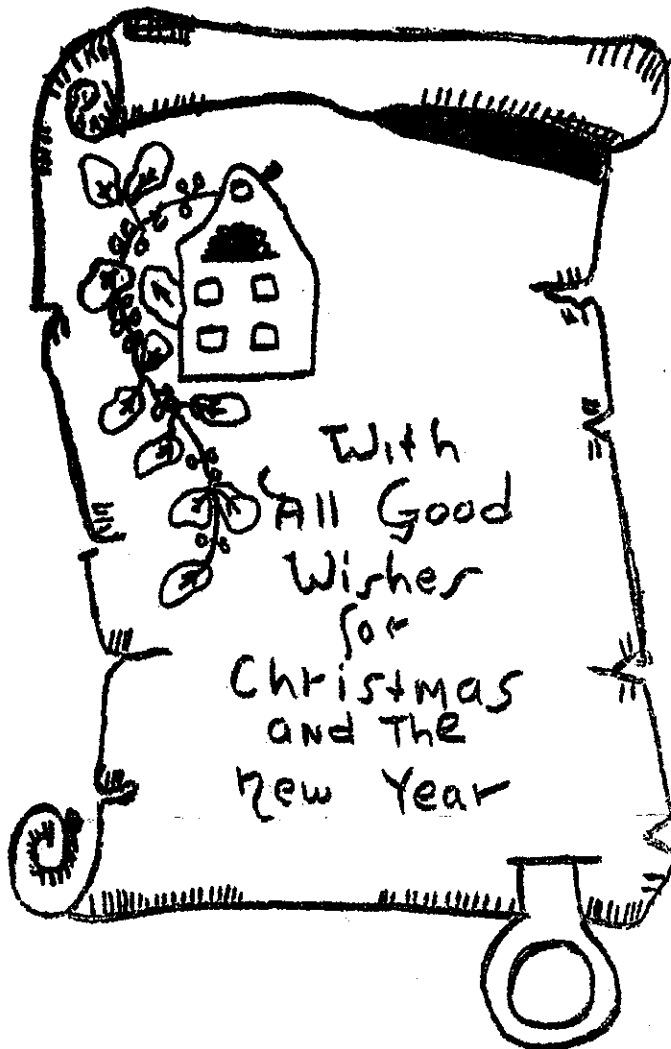 With
All Good
Wishes
for
Christmas
and The
new Year